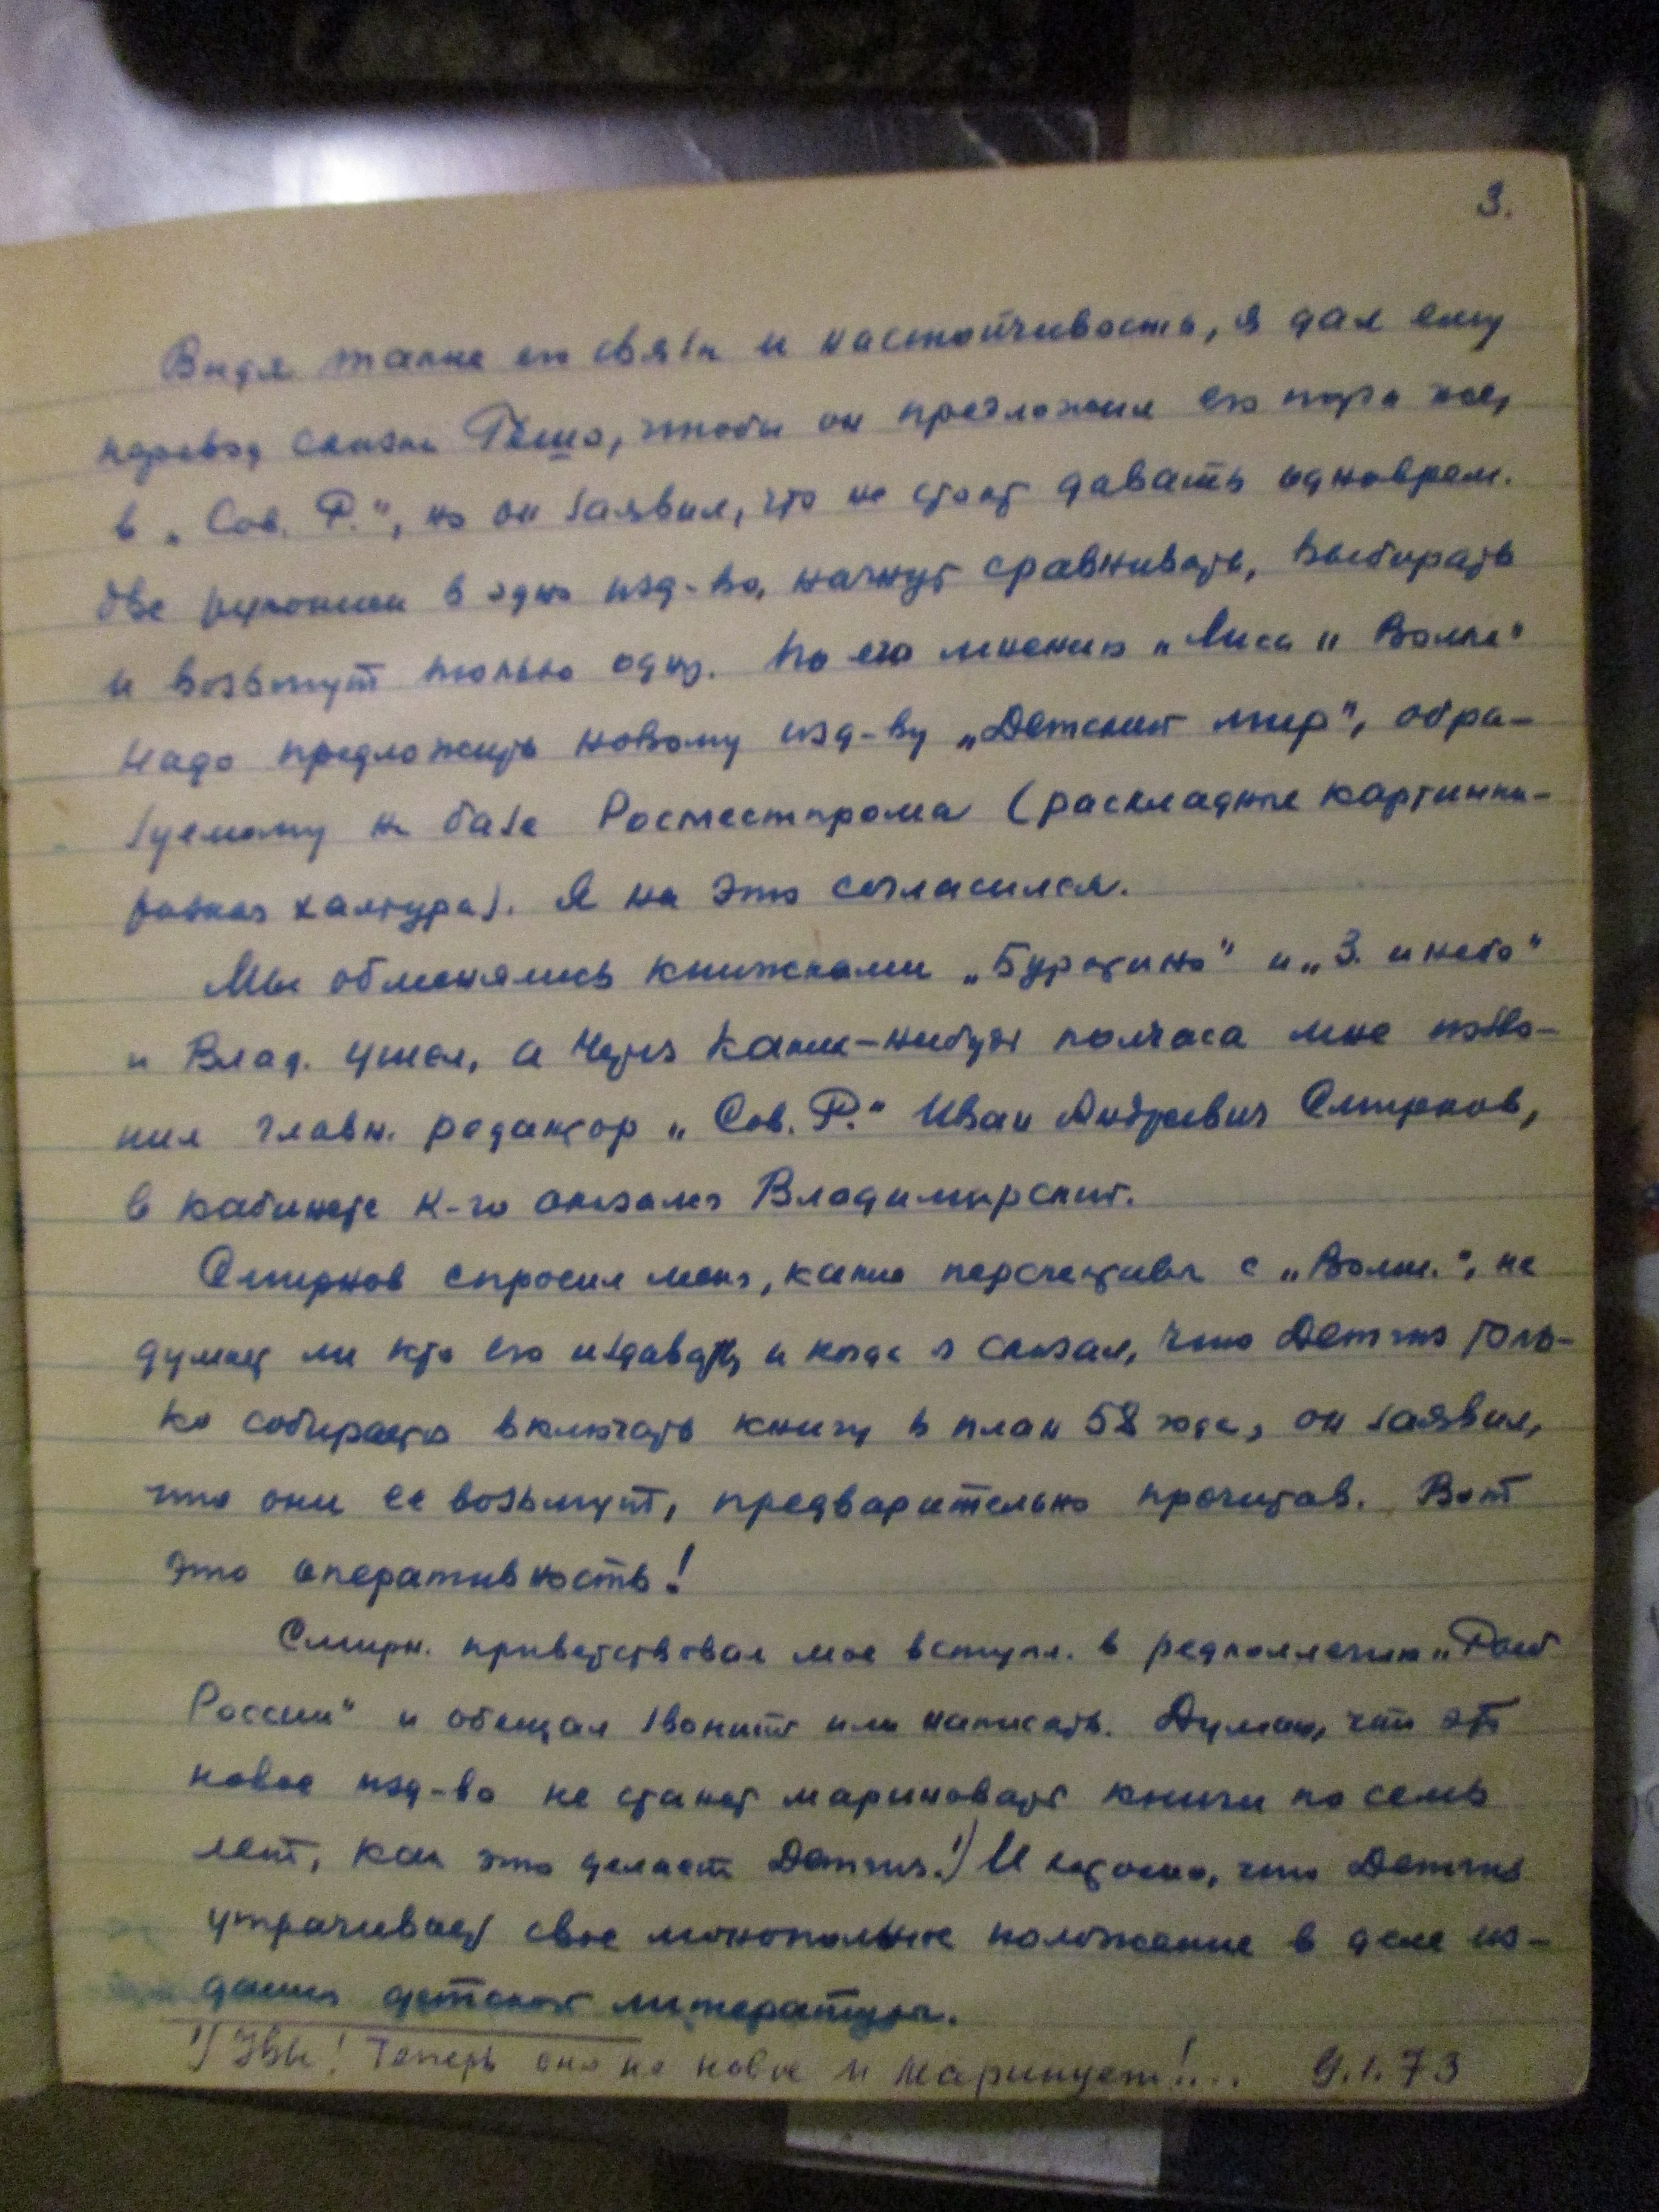 3.
Видя такие его связи и настойчивость, я дал ему
перевод сказки Гёшо, чтобы он предложил его туда же,
в „Сов. Р.", но он заявил, что не стоит давать одноврем.
две рукописи в одно изд-во, начнут сравнивать, выбирать
и возьмут только одну. По его мнению „Лиса и Волк"
надо предложить новому изд-ву „Детский мир", обра-
зуемому на базе Росместпрома (раскладные картинки –
разная халтура). Я на это согласился.
Мы обменялись книжками „Буратино" и „З. и небо"
и Влад. ушел, а через какие-нибудь полчаса мне позво-
нил главн. редактор „Сов. Р." Иван Андреевич Смирнов,
в кабинете к-го оказался Владимирский.
Смирнов спросил меня, какие перспективы с „Волш.", не
думает ли кто его издавать, и когда я сказал, что Детгиз толь-
ко собирается включать книгу в план 58 года, он заявил,
что они ее возьмут, предварительно прочитав. Вот
это оперативность!
Смирн. приветствовал мое вступл. в редколлегию
России" и обещал звонить или написать. Думаю, что это
новое изд-во не станет мариновать книги по семь
лет, как это делает Детгиз.¹) И хорошо, что Детгиз
утрачивает свое монопольное положение в деле из-
дания детской литературы.
¹) Увы! Теперь оно не новое и маринует!... 9.1.73